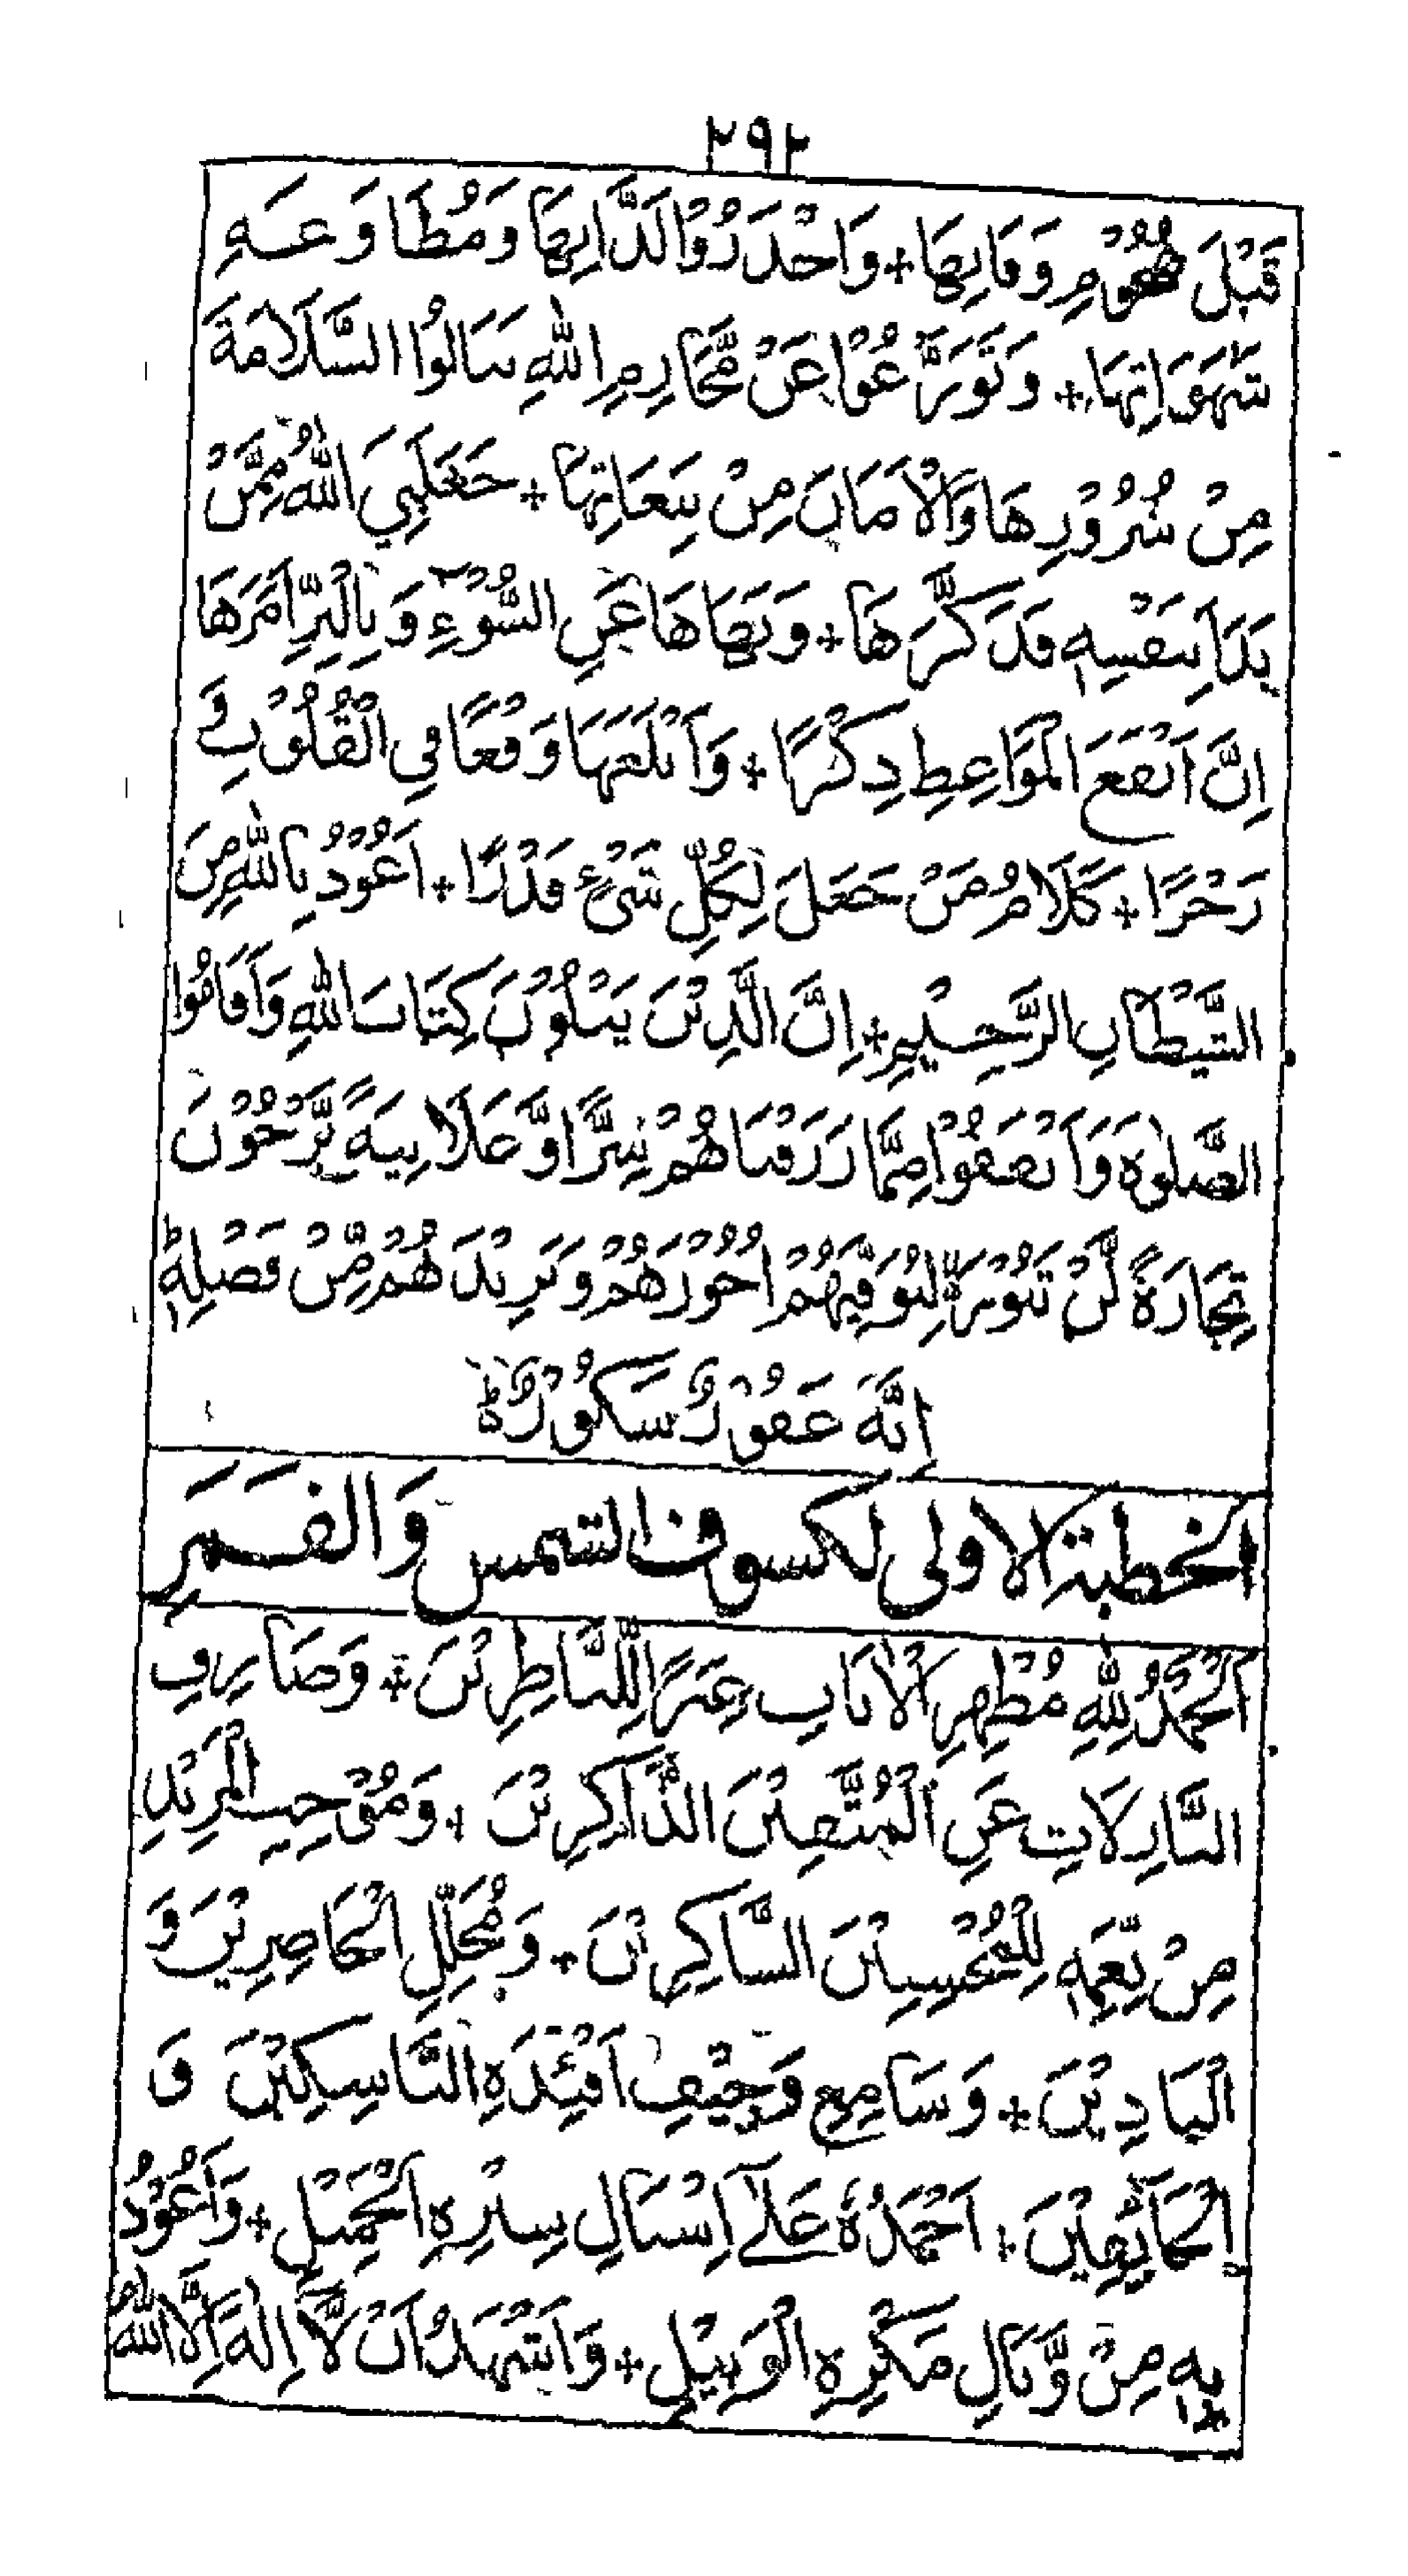 ٢٩٢
قَبْلَ هُجُوْمِ وَفَاتِهَا + وَاحْذَرُوْا لَذَّاتِهَا وَمُطَاوَعَةِ
شَهَوَاتِهَا + وَتَوَرَّعُوْا عَنْ مَّحَارِمِ اللهِ تَنَالُوا السَّلَامَةَ
مِنْ شُرُوْرِهَا وَالْاَمَانَ مِنْ تَبِعَاتِهَا + جَعَلَنِيَ اللهُ مِمَّنْ
بَدَاَ بِنَفْسِهٖ فَذَكَّرَهَا + وَنَهَاهَا عَنِ السُّوْءِ وَبِالْبِرِّ اَمَرَهَا
اِنَّ اَنْفَعَ الْمَوَاعِظِ ذِكْرًا + وَاَبْلَغَهَا وَقْعًا فِي الْقُلُوْبِ وَ
زَجْرًا + كَلَامُ مَنْ جَعَلَ لِكُلِّ شَيْءٍ قَدْرًا + اَعُوْذُ بِاللهِ مِنَ
الشَّيْطَانِ الرَّجِيْمِ + اِنَّ الَّذِيْنَ يَتْلُوْنَ كِتَابَ اللهِ وَاَقَامُوا
الصَّلٰوةَ وَاَنْفَقُوْا مِمَّا رَزَقْنَاهُمْ سِرًّا وَّعَلَانِيَةً يَّرْجُوْنَ
تِجَارَةً لَّنْ تَبُوْرَ لِيُوَفِّيَهُمْ اُجُوْرَهُمْ وَيَزِيْدَهُمْ مِّنْ فَضْلِهٖ
اِنَّهٗ غَفُوْرٌ شَكُوْرٌ
الخطبة الاولى لكسوف الشمس وَالقَمَرِ
اَلْحَمْدُ لِلّٰهِ مُظْهِرِ الْاٰيَاتِ عِبَرًا لِّلنَّاظِرِيْنَ + وَصَارِفِ
النَّازِلَاتِ عَنِ الْمُتَّقِيْنَ الذَّاكِرِيْنَ + وَمُوْجِبِ الْمَزِيْدِ
مِنْ نِّعَمِهٖ لِلْمُحْسِنِيْنَ الشَّاكِرِيْنَ + وَمُجَلِّلِ الْحَاضِرِيْنَ وَ
الْبَادِيْنَ + وَسَامِعِ وَجِيْفِ اَفْئِدَةِ النَّاسِكِيْنَ وَ
الْخَآئِفِيْنَ + اَحْمَدُهٗ عَلٰى اِسْبَالِ سِتْرِهِ الْجَمِيْلِ + وَاَعُوْذُ
بِهٖ مِنْ وَّبَالِ مَكْرِهِ الْوَبِيْلِ + وَاَشْهَدُ اَنْ لَّآ اِلٰهَ اِلَّا اللهُ